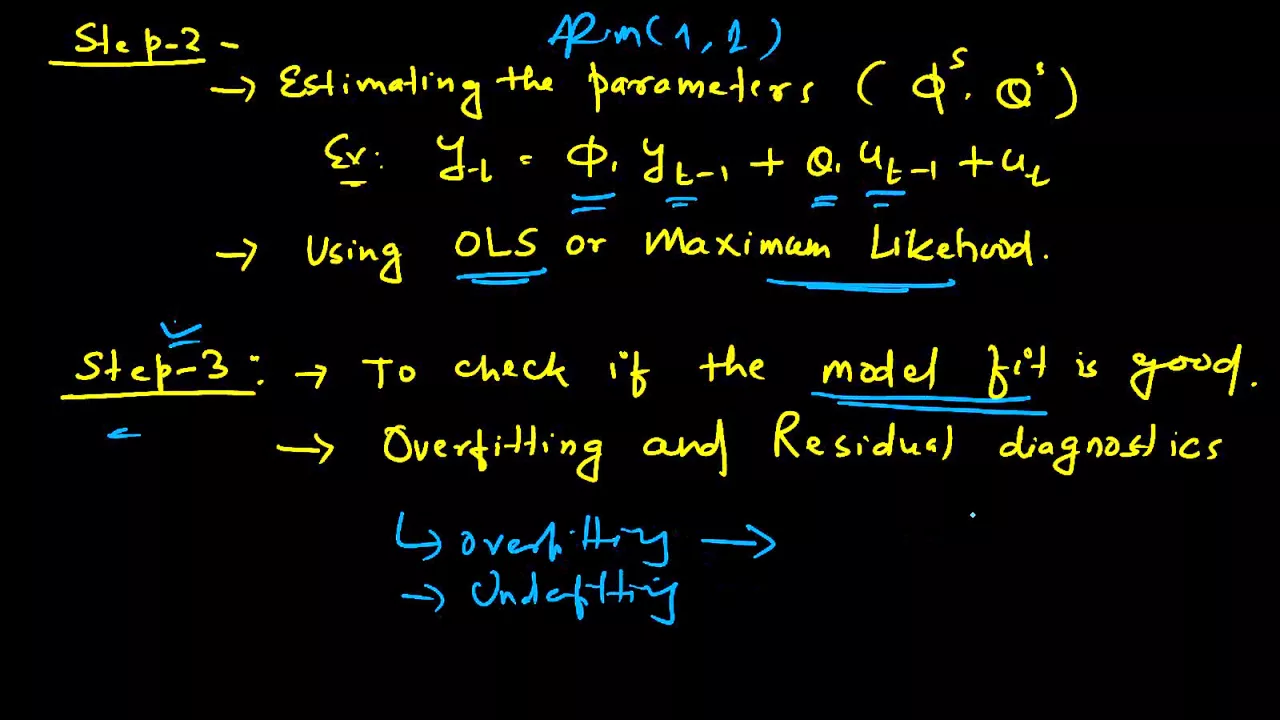 Step-2 -
ARm(1,1)
→ Estimating the parameters (ϕ^s, θ^s)
Ex: y_t = ϕ₁ y_{t-1} + θ₁ u_{t-1} + u_t
→ Using OLS or Maximum Likehood.
Step-3: → To check if the model fit is good.
→ Overfitting and Residual diagnostics
↳ Overfitting →
→ Undefitting